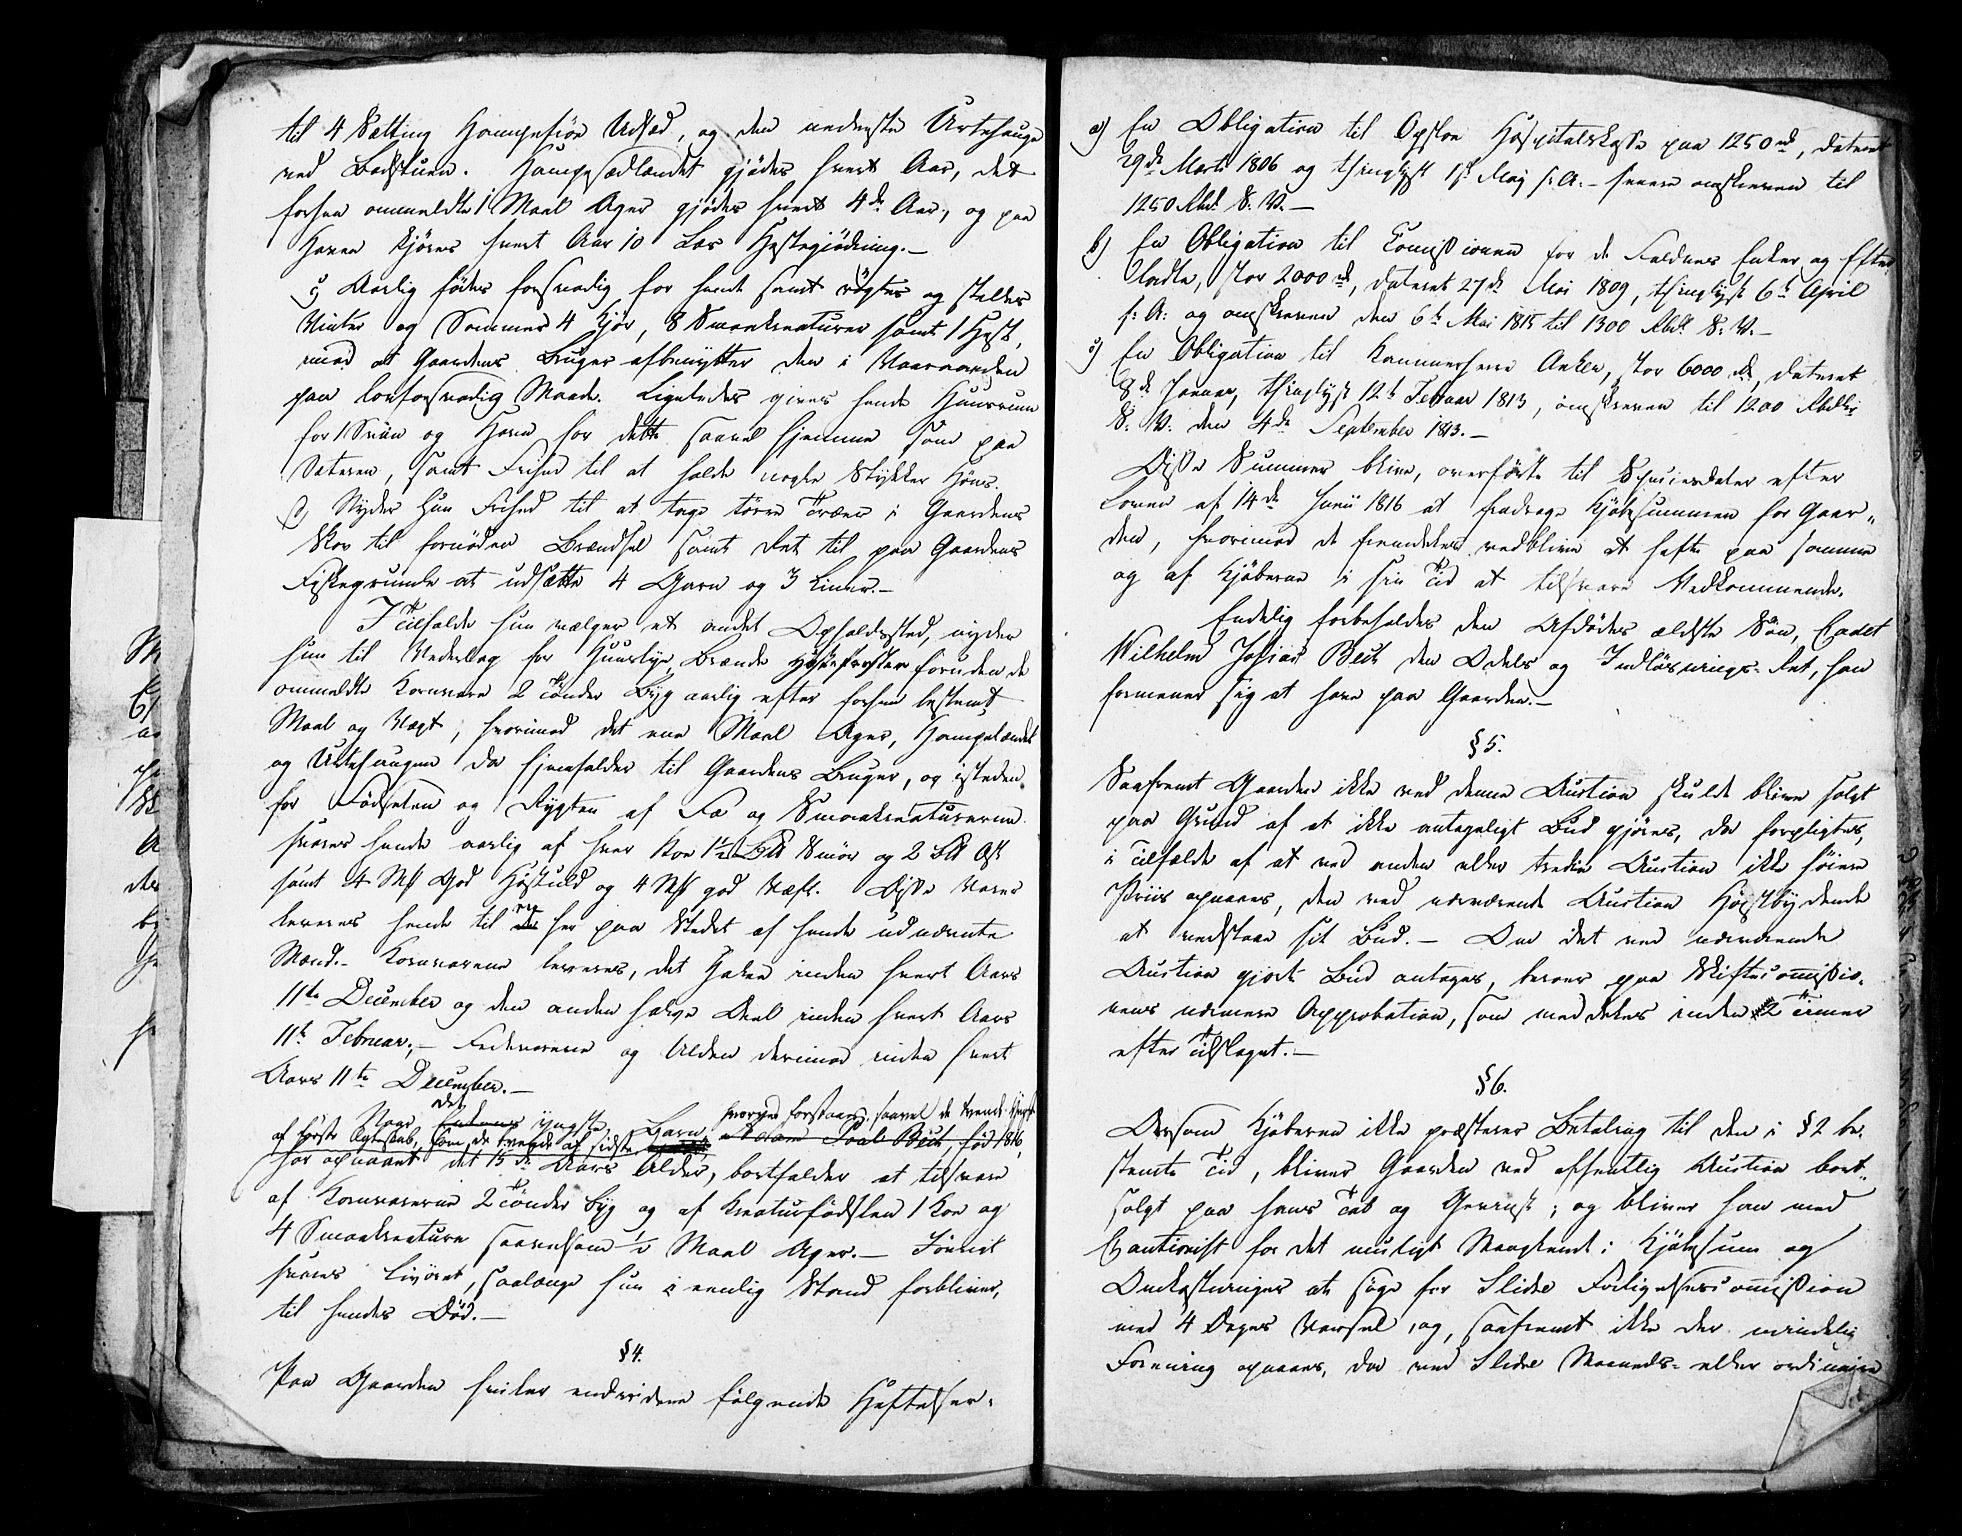 til 4 Sætting Hampefröe Udsæd, og den nederste Urtehauge
ved Badstuen. Hampesædlandet gjödes hvert Aar, det
forhen ommeldte 1 Maal Ager gjödes hvert 4de Aar, og paa
Haven kjöres hvert Aar 10 Læs Hestegjödning.—
c) Aarlig födes forsvarlig for hende samt rögtes og stelles
Vinter og Sommer 4 Kjör, 8 Smaakreaturer samt 1 Hest,
mod at Gaardens Bruger afbenytter den i Vaaraanden
paa lovforsvarlig Maade. Ligeledes gives hende Huusrum
for 1 Sviin og Havn for dette saavel hjemme som paa
Sæteren, samt Frihed til at holde nogle Stykker Höns.
d) Nyder hun Frihed til at tage törre Træer i Gaardens
Skov til fornöden Brændsel samt Ret til paa Gaardens
Fiskegrunde at udsætte 4 Garn og 3 Liner.—
I Tilfælde hun vælger et andet Opholdssted, nyder
hun til Vederlag for Huuslye, Brænde foruden de
ommeldte Kornvare 2 Tönder Byg aarlig efter forhen bestemt
Maal og Vægt, hvorimod det ene Maal Ager, Hampelandet
og Urtehaugen da hjemfalder til Gaardens Bruger, og isteden
for Födselen og Rygten af Fæ og Smaakreaturerne
svares hende aarlig af hver Koe 1½ Bpd Smör og 2 Bpd Ost
samt 4 Mk god Höstuld og 4 Mk god Væft. Disse Varer
leveres hende til her paa Stedet af hende udnævnte
Mænd.- Kornvarene leveres, det Halve inden hvert Aars
11te December og den anden halve Deel inden hvert Aars
11te Februar;— Fedevarene og Ulden derimod inden hvert
Aars 11te December.—
Naar det Enkens yngste Barn, hvorved forstaaes, saavel de tvende
af förste Ægteskab, som de tvende af sidste Paal Beck, född 1816,
har opnaaet det 15de Aars Alder, bortfalder at tilsvare
af Kornvarerne 2 Tönder Byg og af Kreaturfödslen 1 Koe og
4 Smaakreature saavelsom ½ Maal Ager.— Forövrigt
svares Livöret, saalænge hun i eenlig Stand forbliver,
til hendes Död.—
§ 4.
Paa Gaarden hviler endvidere fölgende Hæftelser:
a) En Obligation til Opsloe Hospitalskasse paa 1250 rd, dateret
29de Marts 1806 og thinglyst 1ste May s: A:— senere omskreven til
1250 Rbd. S. V.—
b) En Obligation til Comissionen for de Faldnes Enker og Efter
ladte, stor 2000 rd, dateret 27de Mai 1809, thinglyst 6te April
s: A: og omskreven den 6te Mai 1815 til 1300 Rbd. S. V.—
c) En Obligation til Kammerherre Anker, stor 6000 rd, dateret
8de Januar, thinglyst 12te Februar 1813, omskreven til 1200 Rbdlr
S. V. den 4de September 1813.—
Disse Summer blive, overförte til Speciesdaler efter
Loven af 14de Junii 1816 at fradrage Kjöbesummen for Gaar„
den, hvorimod de fremdeles vedblive at hefte paa samme
og af Kjöberen i sin Tid at tilsvare Vedkommende.
Endelig forbeholdes den Afdödes ældste Sön, Cadet
Wilhelm Josias Beck den Odels og Indlösnings-Ret, han
formener sig at have paa Gaarden.—
§ 5.
Saafremt Gaarden ikke ved denne Auction skulde blive solgt
paa Grund af at ikke antageligt Bud gjöres, da forpligtes,
i Tilfælde af at ved anden eller tredie Auction ikke höiere
Priis opnaaes, den ved nærværende Auction Höistbydende
at vedstaae sit Bud.— Om det ved nærværende
Auction gjort Bud antages, beroer paa Skiftecomissio-
nens nærmere Approbation, som meddeles inden 2 Timer
efter Tilslaget.—
§ 6.
Dersom Kjöberen ikke præsterer Betaling til den i § 2 be-
stemte Tid, bliver Gaarden ved offentlig Auction bort„
solgt paa hans Tab og Gevinst; og bliver han med
Cautionist for det muligt Manglende i Kjöbesum og
Omkostninger at söge for Slidre Forligelsescomission
med 4 Dages Varsel, og, saafremt ikke der mindelig
Forening opnaaes, da ved Slidre Maaneds- eller ordinaire